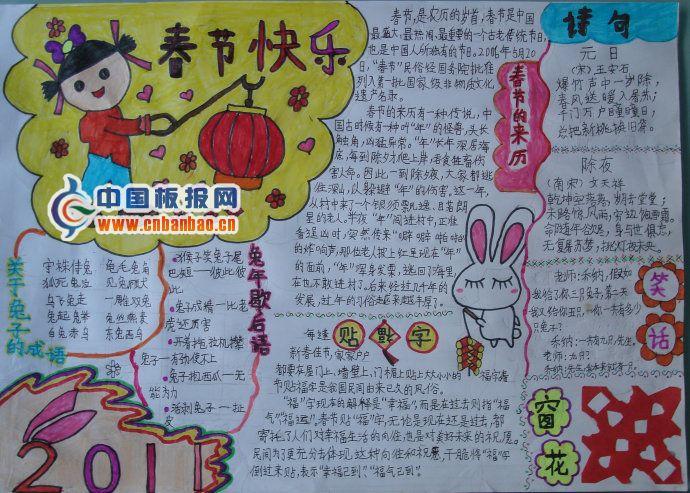 春节快乐
中国板报网
www.cnbanbao.cn
春节的来历
春节,是农历的岁首,春节是中国
最盛大、最热闹、最重要的一个古老传统节日,
也是中国人所独有的节日。2006年5月20
日,"春节"民俗经国务院批准
列入第一批国家级非物质文化
遗产名录。
春节的来历有一种传说,中
国古时候有一种叫"年"的怪兽,头长
触角,凶猛异常。"年"长年深居海
底,每到除夕爬上岸,吞食牲畜伤
害人命。因此,一到除夕,大家都逃
往深山,以躲避"年"的伤害。这一年,
从村中来了一个银须飘逸,目若朗
星的老人。半夜"年"闯进村,正准
备逞凶时,突然传来"噼噼啪啪"
的炸响声,那位老人披上红
的面前,"年"浑身发栗,逃回了海里,
在也不敢进村了。后来经过几千年的
发展,过年的习俗越来越丰厚了。
诗句
元日
(宋)王安石
爆竹声中一岁除,
春风送暖入屠苏;
千门万户曈曈日,
总把新桃换旧符。
除夜
(南宋)文天祥
乾坤空落落,岁月去堂堂;
末路惊风雨,穷边饱雪霜。
命随年欲尽,身与世俱忘;
无复屠苏梦,挑灯夜未央。
笑话
老师:乔纳,假如
我给了你三只兔子,第二天
我又给你五只,你一共有多少
只兔子?
乔纳:一共有九只,先生。
老师:九只?
关于兔子的成语
守株待兔
狐死兔泣
乌飞兔走
兔起鹘举
白兔赤乌
龟毛兔角
见兔顾犬
一雕双兔
兔丝燕麦
东兔西乌
兔年歇后语
猴子笑兔子尾
巴短—彼此彼
此
兔子成精—比老
虎还厉害
开着拖拉机撵
兔子—有劲使不上
兔子拉西瓜—无
能为力
活剥兔子—扯
皮
贴福字
每逢
新春佳节,家家户户
都要在屋门上,墙壁上,门楣上贴上大大小小的
"福"字春
节贴福字是我国民间由来已久的风俗。
"福"字现在的解释是"幸福",而在过去则指"福
气""福运"。春节贴"福"字,无论是现在还是过去,都
寄托了人们对幸福生活的向往,也是对美好未来的祝愿。
民间为了更充分体现这种向往和祝愿,干脆将"福"字
倒过来贴,表示"幸福已到""福气已到"。
窗花
2011